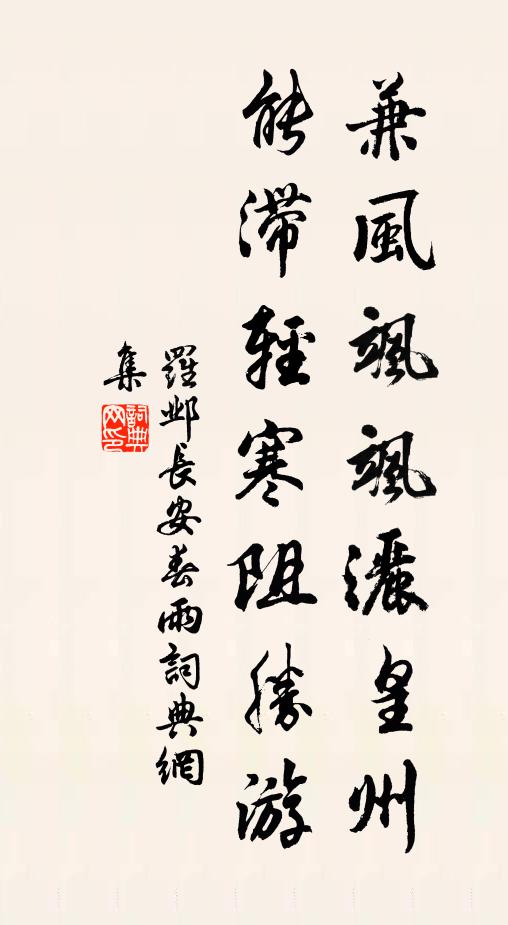 兼風颯颯灑皇州
能滯輕寒阻勝游
羅鄴長安春雨詞典網
集
詞典網印